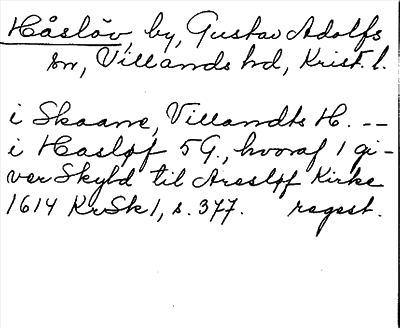 Håslöv, by, Gustav Adolfs
sn, Villands hd, Krist. l.
i Skaane, Villandts H. --
i Hasløf 5 G., hvoraf 1 gi-
ver Skyld til Aresløf Kirke
1614 KrSk 1, s. 377. regest.